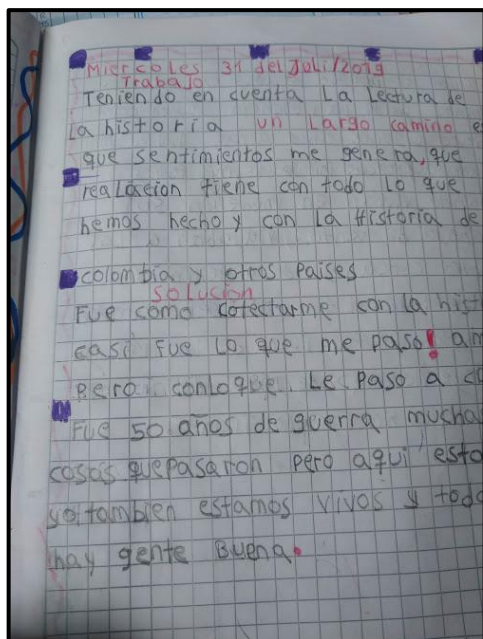 Miercoles 31 del Juli/2019
Trabajo
Teniendo en cuenta La Lectura de
La historia un Largo camino
que sentimientos me genera, que
reaLacion tiene con todo Lo que
hemos hecho y con La Historia de
colombia y otros Paises
solucion
Fue como cotectarme con la
casi fue Lo que me paso!
Pero conloque Le Paso a
Fue 50 años de guerra
cosas quepasaron pero aqui
yo tambien estamos vivos y
hay gente Buena.